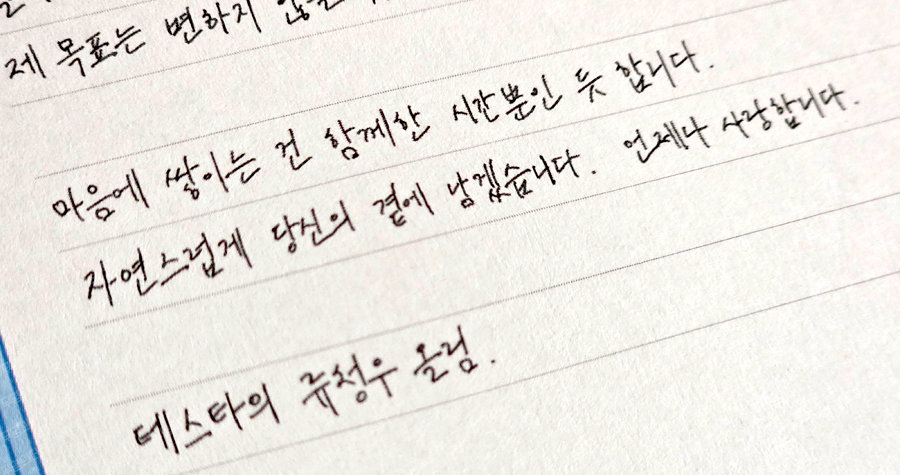 제 목표는 변하지 않을
마음에 쌓이는 건 함께한 시간뿐인 듯 합니다.
자연스럽게 당신의 곁에 남겠습니다. 언제나 사랑합니다.
테스타의 류청우 올림.